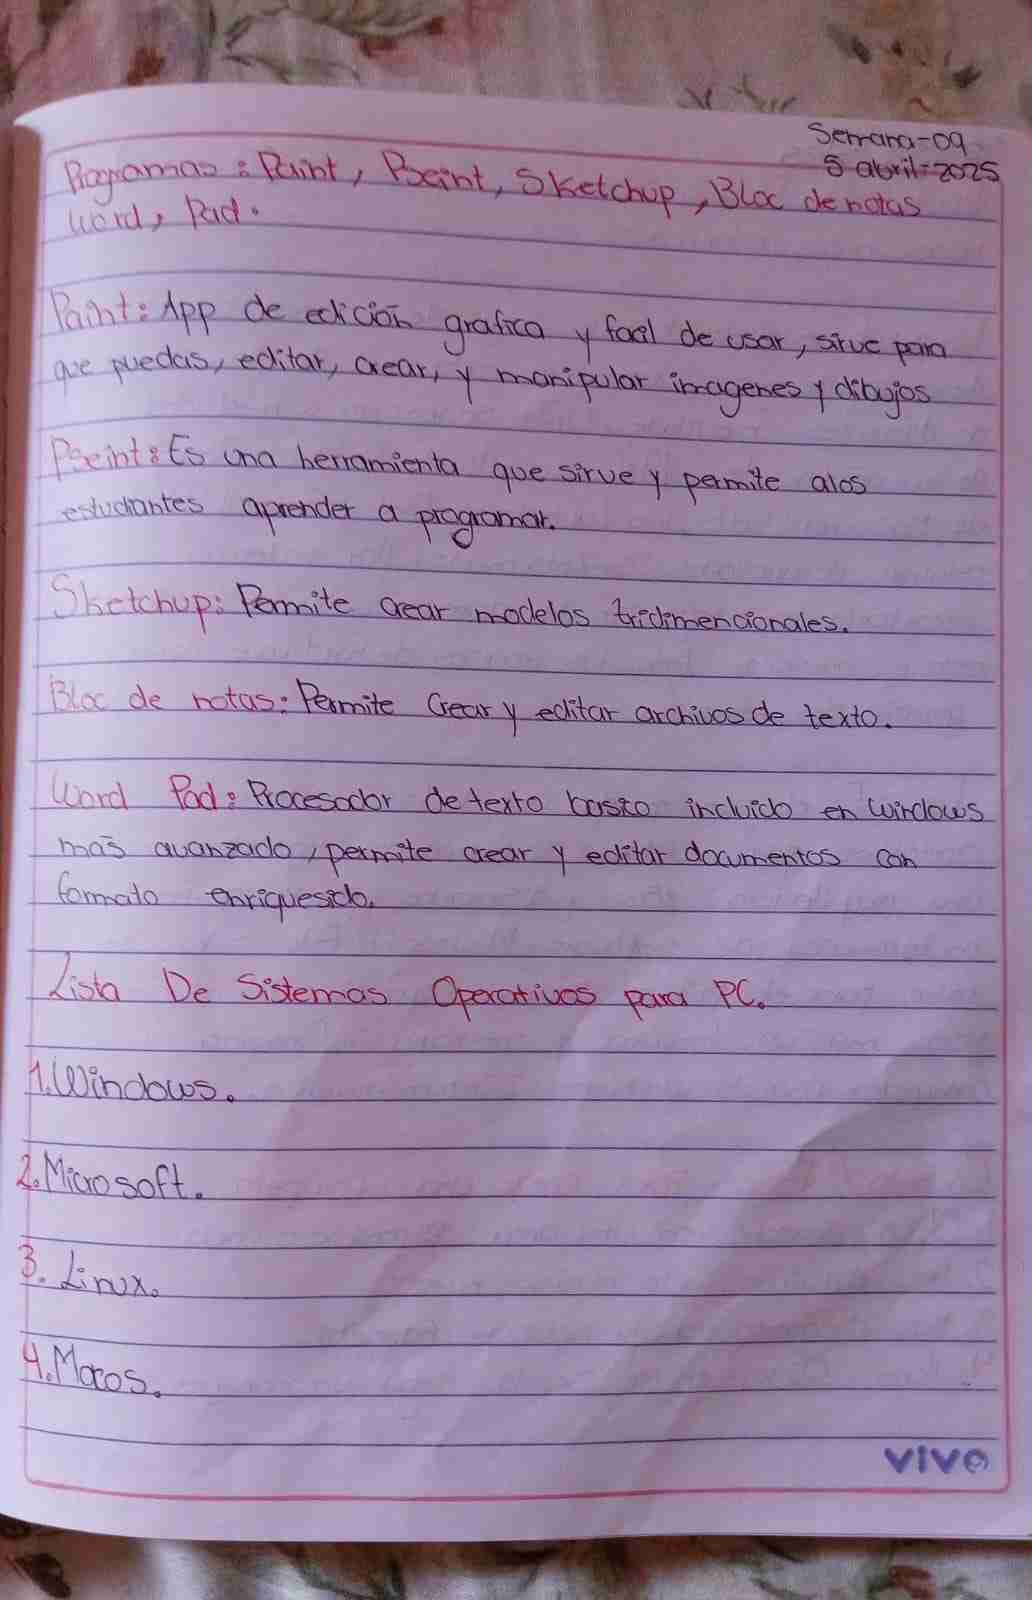 Semana-09
5 abril-2025
Programas: Paint, Pseint, Sketchup, Bloc de notas
Word, Pad.
Paint: App de edición grafica y facil de usar, sirve para
que puedas, editar, crear, y manipular imagenes y dibujos
Pseint: Es una herramienta que sirve y permite alos
estudiantes aprender a programar.
Sketchup: Permite crear modelos tridimencionales.
Bloc de notas: Permite Crear y editar archivos de texto.
Word Pad: Procesador de texto basico incluido en windows
más avanzado, permite crear y editar documentos con
formato enriquesido.
Lista De Sistemas Operativos para PC.
1. Windows.
2. Microsoft.
3. Linux.
4. Macos.
vivo